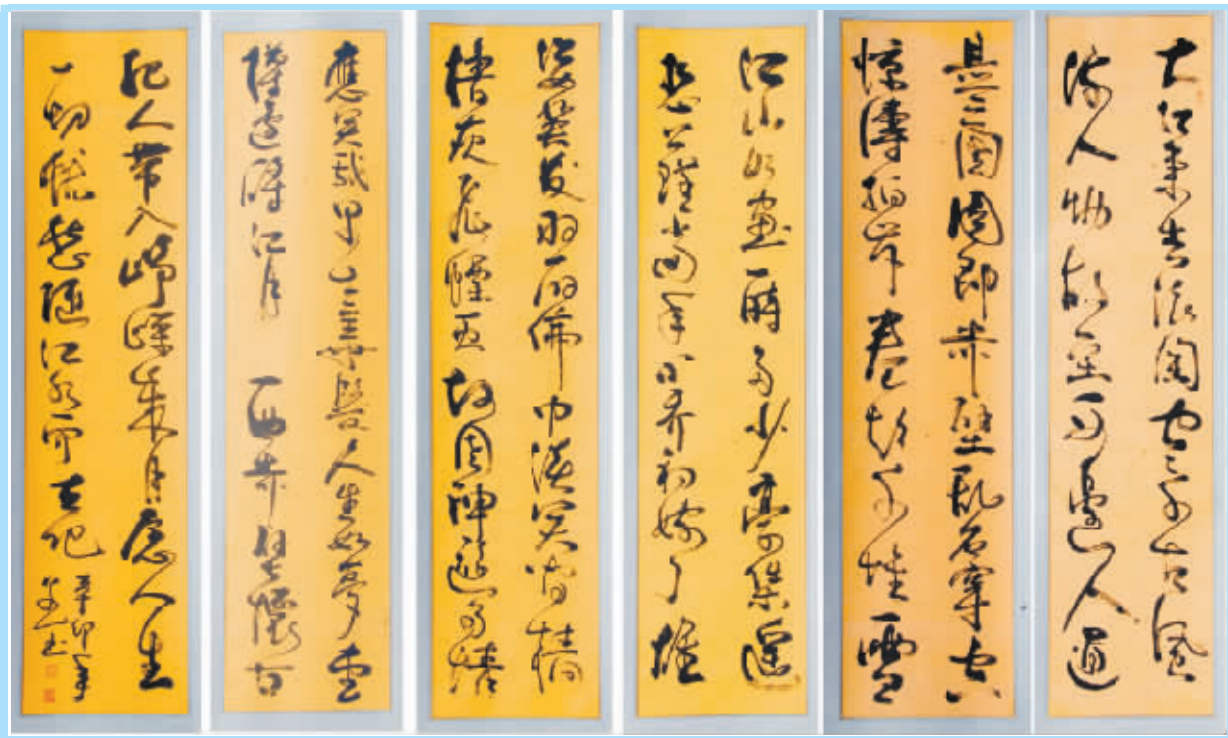 大江東去浪淘尽千古風
流人物故壘西邊人道
是三國周郎赤壁乱石穿空
惊濤拍岸卷起千堆雪
江山如畫一時多少豪傑遙
想公瑾当年小乔初嫁了雄
姿英发羽扇綸巾談笑間檣
櫓灰飛煙滅故國神遊多情
應笑我早生華髮人生如夢一尊
還酹江月 赤壁懷古
人帶入崢嶸歲月 人生
一切 愁隨江水而去
辛卯年
书